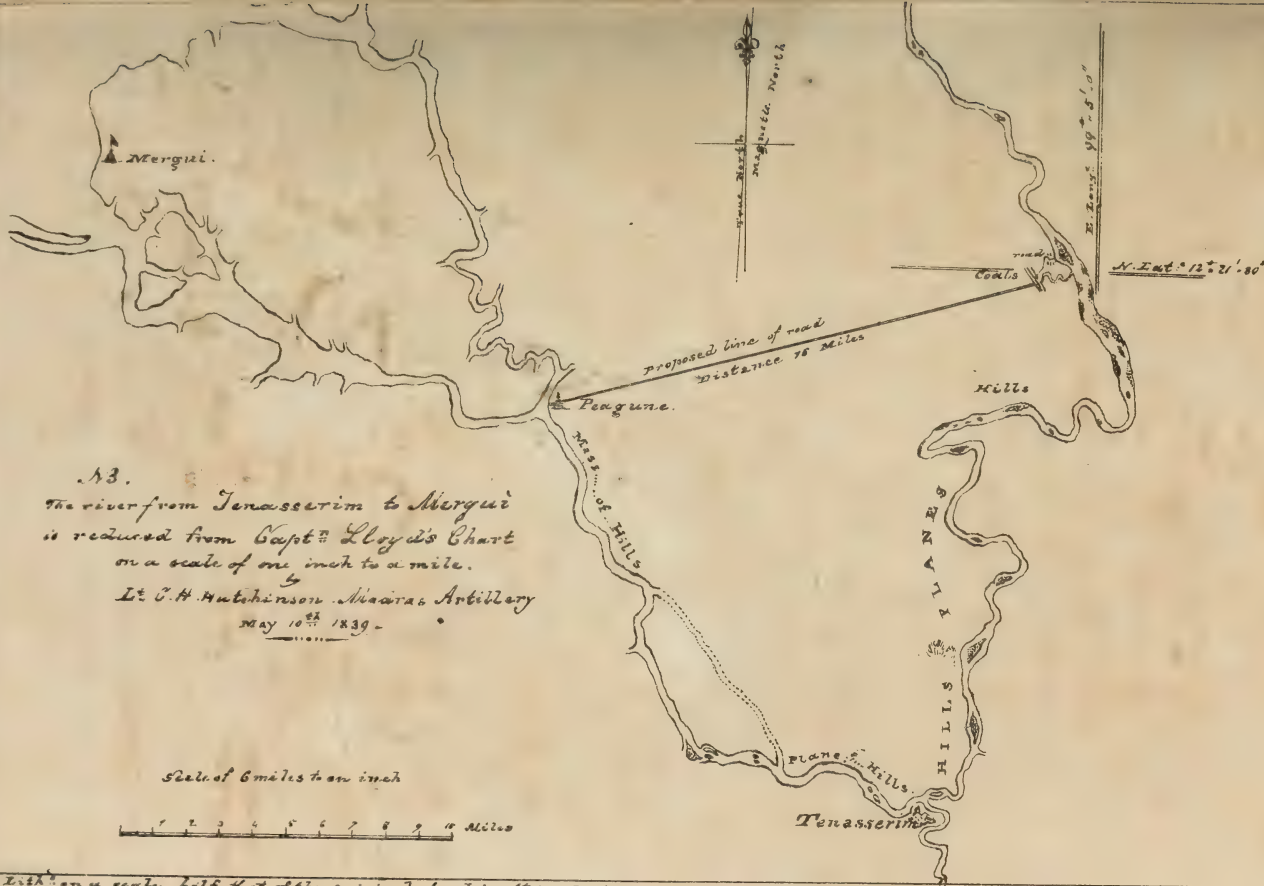 Mergui.
True North
Magnetic North
E. Longe. 99°-5'-0"
N. Late. 12°-21'-30"
road
Coals
Proposed line of road
Distance 15 Miles
Peagune.
Hills
Mass of Hills
HILLS & PLANES
NB.
The river from Tenasserim to Mergui
is reduced from Captn. Lloyd's Chart
on a scale of one inch to a mile.
by
Lt. C. H. Hutchinson Madras Artillery
May 10th 1839.
Plane & Hills.
Tenasserim
Scale of 6 miles to an inch
1 2 3 4 5 6 7 8 9 10 Miles
on a scale half that of the